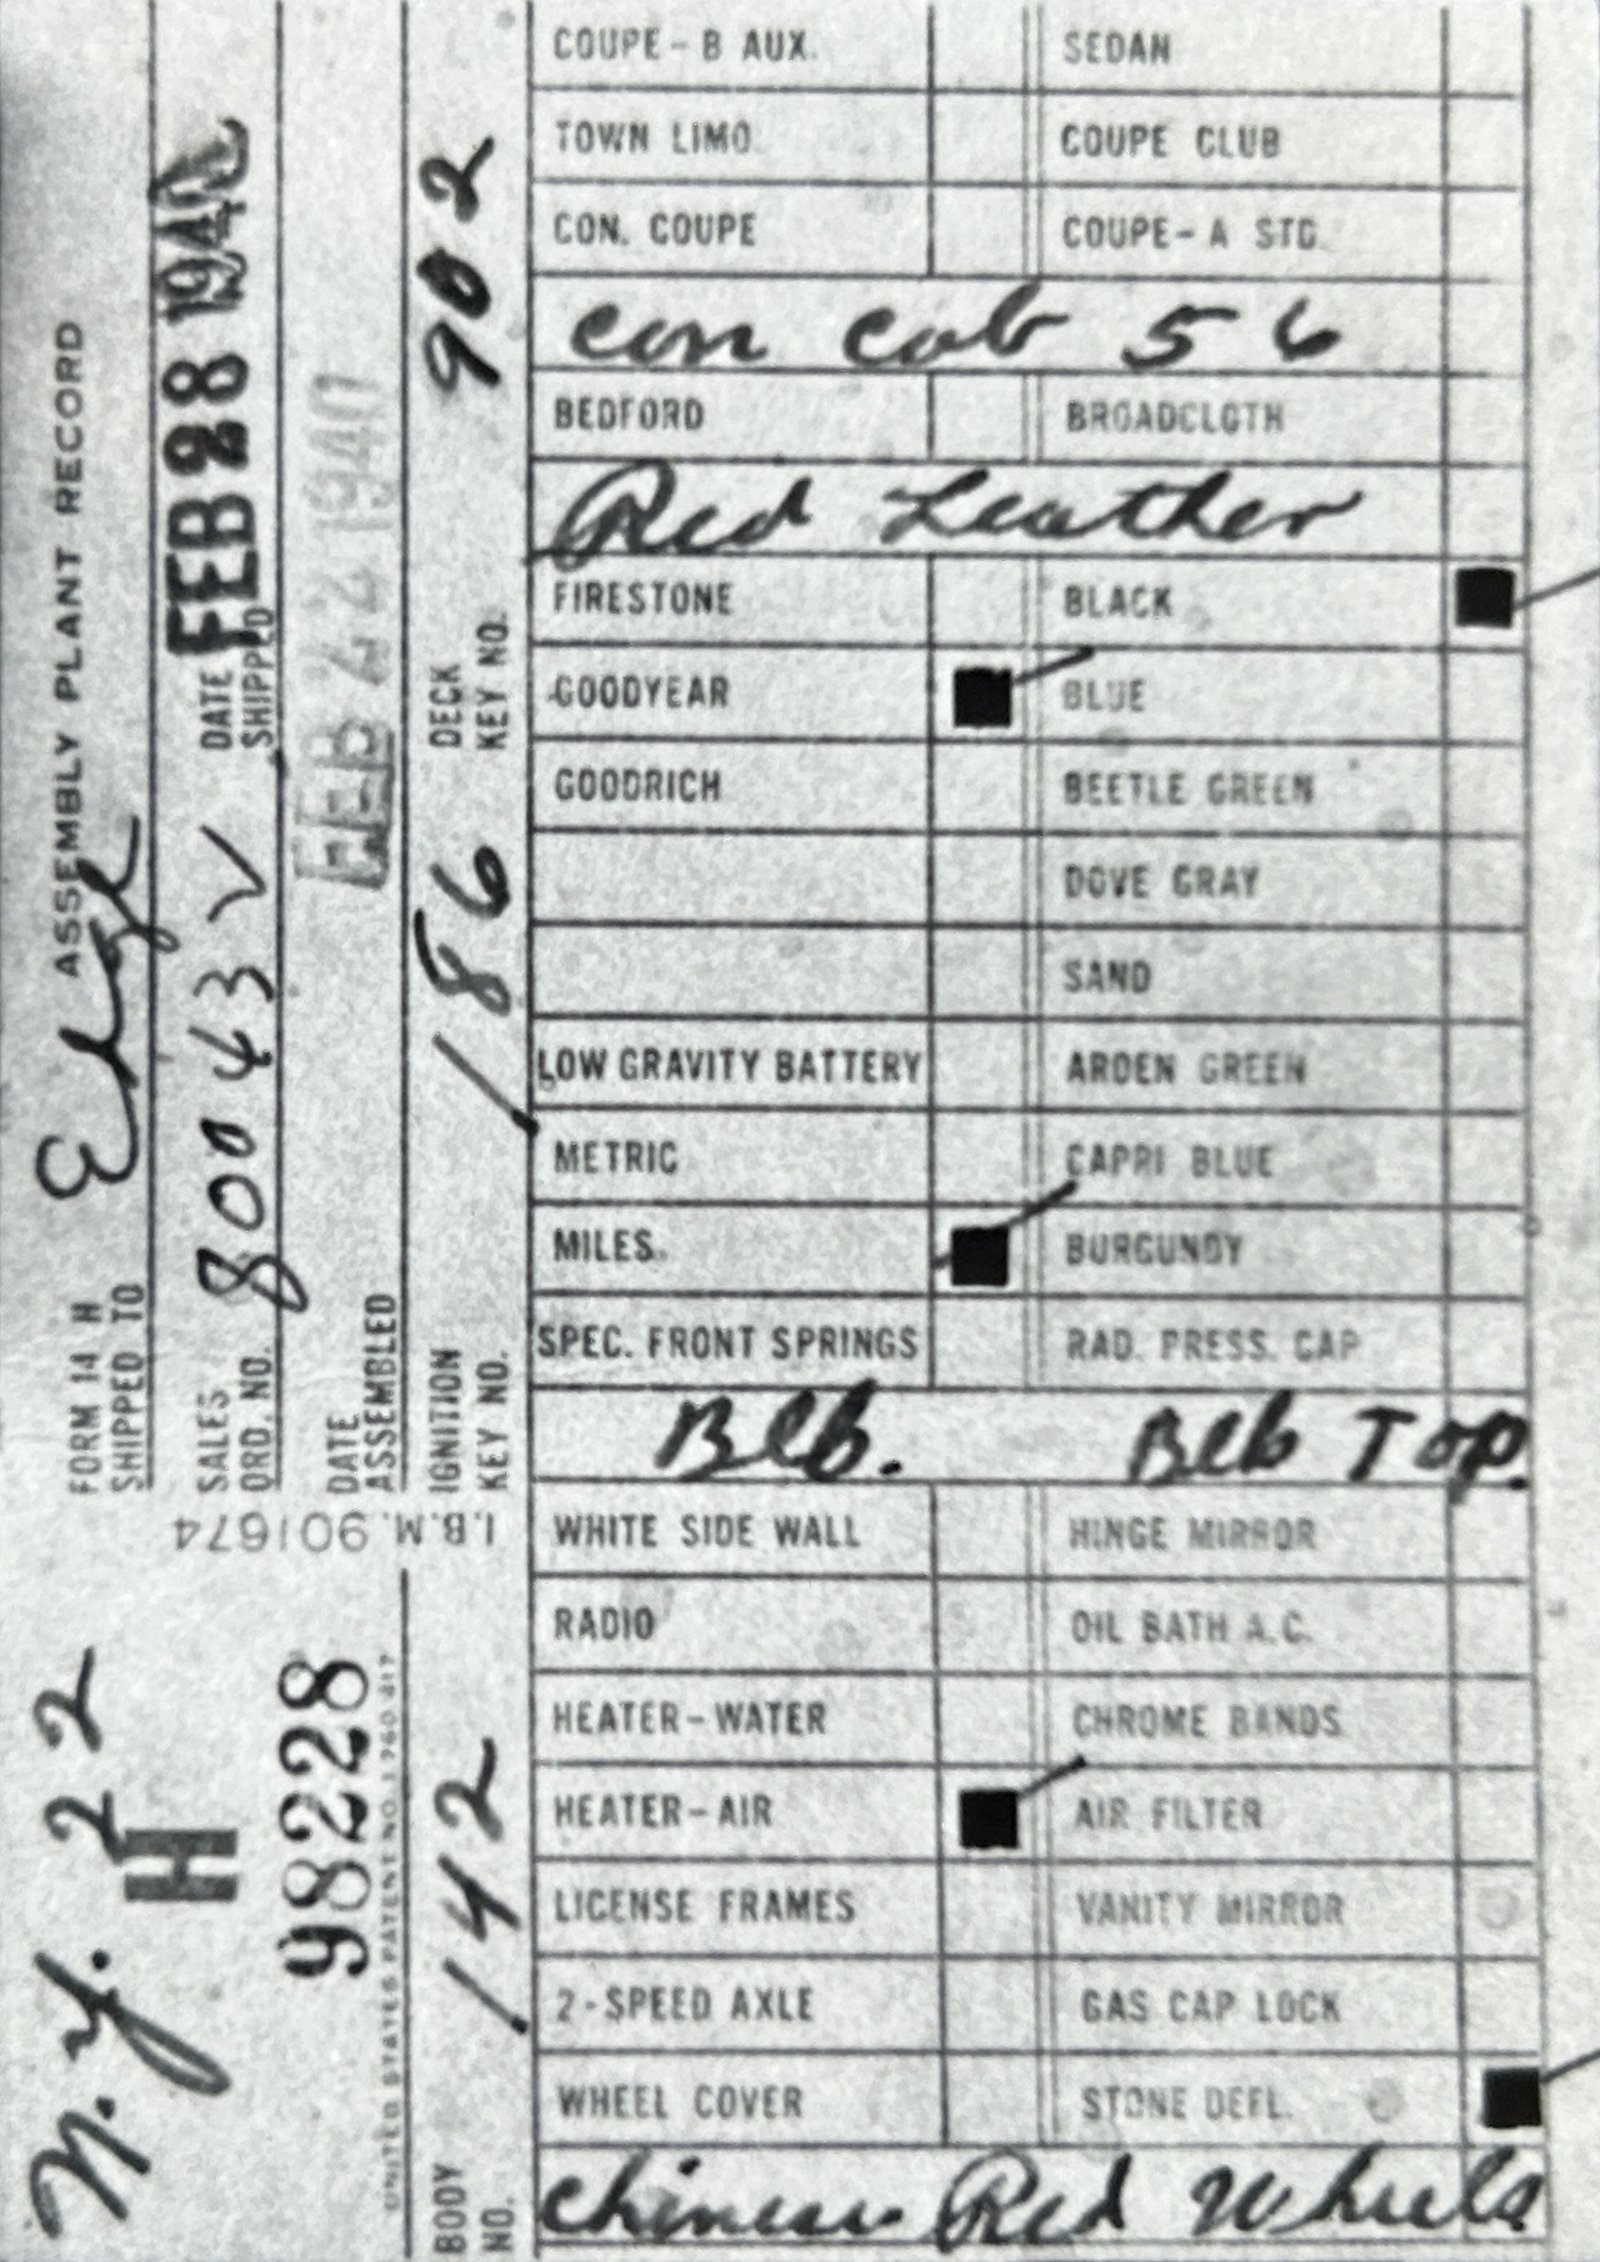 FORM 14 H ASSEMBLY PLANT RECORD
SHIPPED TO
SALES ORD. NO. 80043 ✓ DATE SHIPPED FEB 28 1940
DATE ASSEMBLED FEB 1940
IGNITION KEY NO. 186 DECK KEY NO. 902
I.B.M. 901674
N.Y. 22
H
98228
UNITED STATES PATENT NO. 1,760,417
BODY NO. 142
COUPE-B AUX. SEDAN
TOWN LIMO. COUPE CLUB
CON. COUPE COUPE-A STD.
con cab 56
BEDFORD BROADCLOTH
Red Leather
FIRESTONE BLACK
GOODYEAR BLUE
GOODRICH BEETLE GREEN
DOVE GRAY
SAND
LOW GRAVITY BATTERY ARDEN GREEN
METRIC CAPRI BLUE
MILES. BURGUNDY
SPEC. FRONT SPRINGS RAD. PRESS. CAP
Blb. Blb Top.
WHITE SIDE WALL HINGE MIRROR
RADIO OIL BATH A.C.
HEATER-WATER CHROME BANDS
HEATER-AIR AIR FILTER
LICENSE FRAMES VANITY MIRROR
2-SPEED AXLE GAS CAP LOCK
WHEEL COVER STONE DEFL.
Chinese Red Wheels